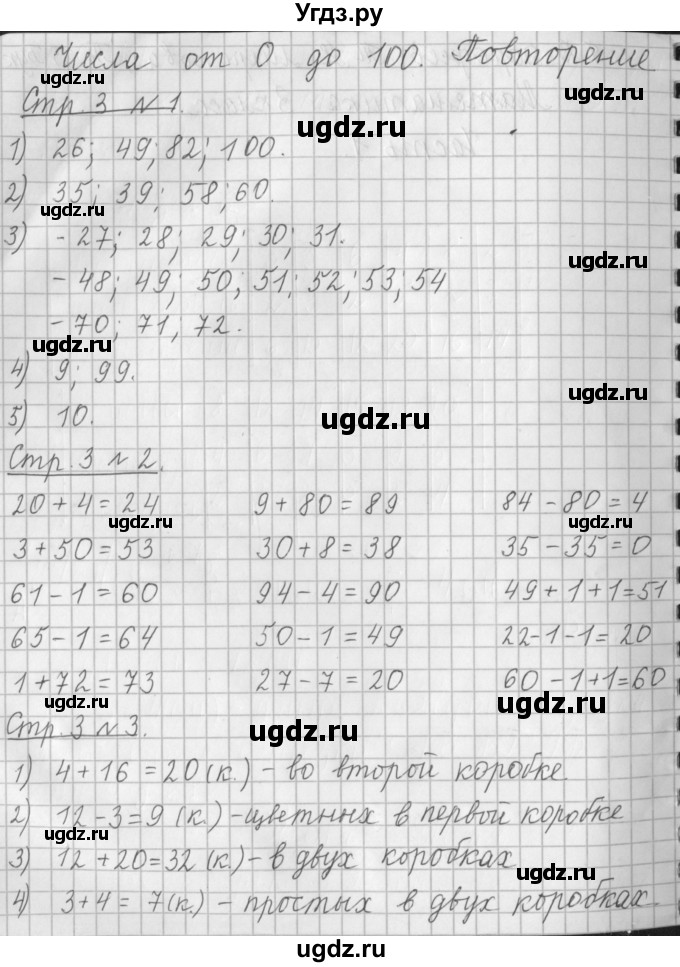 Угдз.ру
Числа от 0 до 100. Повторение
ugdz.ru ugdz.ru
Стр. 3 № 1.
ugdz.ru
1) 26; 49; 82; 100.
2) 35; 39; 58; 60.
ugdz.ru
3) - 27; 28; 29; 30; 31.
ugdz.ru
- 48; 49; 50; 51; 52; 53; 54
- 70; 71; 72.
ugdz.ru
4) 9; 99.
ugdz.ru
5) 10.
ugdz.ru
Стр. 3 № 2.
20 + 4 = 24 9 + 80 = 89 84 - 80 = 4
ugdz.ru ugdz.ru
3 + 50 = 53 30 + 8 = 38 35 - 35 = 0
61 - 1 = 60 94 - 4 = 90 49 + 1 + 1 = 51
65 - 1 = 64 50 - 1 = 49 22 - 1 - 1 = 20
1 + 72 = 73 27 - 7 = 20 60 - 1 + 1 = 60
ugdz.ru ugdz.ru
Стр. 3 № 3.
ugdz.ru
1) 4 + 16 = 20 (к.) - во второй коробке
2) 12 - 3 = 9 (к.) - цветных в первой коробке
ugdz.ru
3) 12 + 20 = 32 (к.) - в двух коробках
ugdz.ru
4) 3 + 4 = 7 (к.) - простых в двух коробках.
ugdz.ru
ugdz.ru